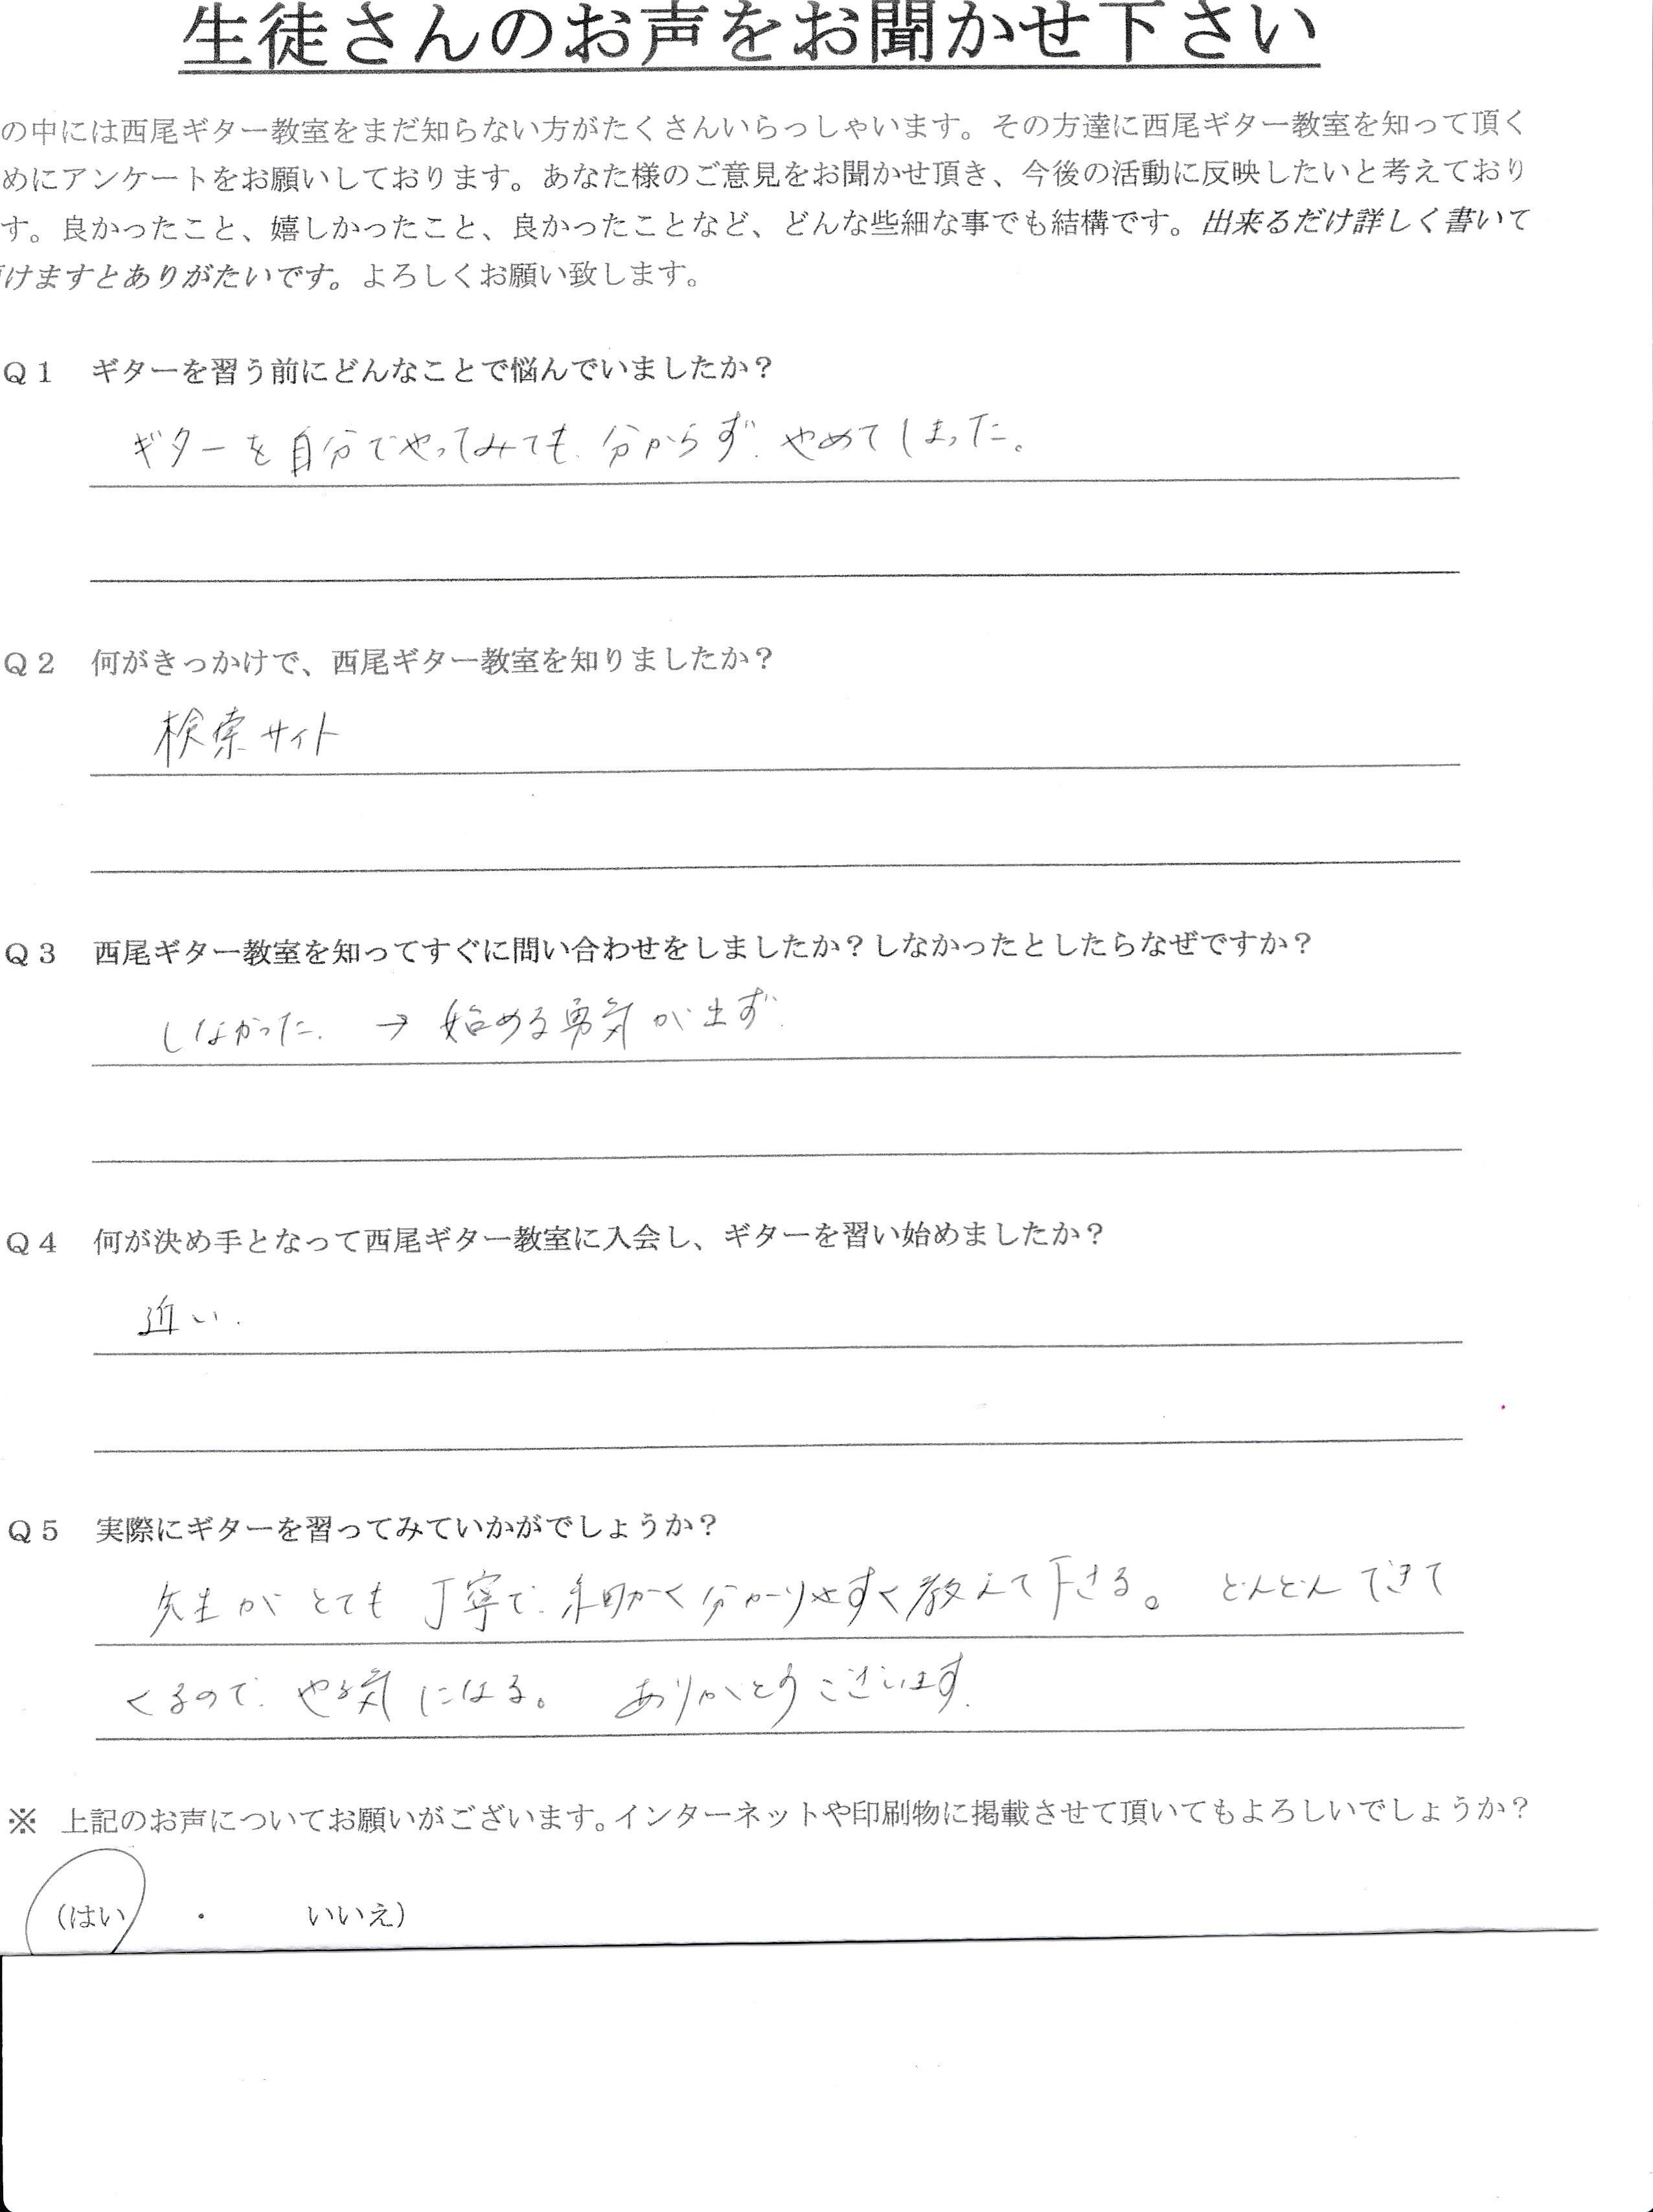 生徒さんのお声をお聞かせ下さい
の中には西尾ギター教室をまだ知らない方がたくさんいらっしゃいます。その方達に西尾ギター教室を知って頂く
めにアンケートをお願いしております。あなた様のご意見をお聞かせ頂き、今後の活動に反映したいと考えており
す。良かったこと、嬉しかったこと、良かったことなど、どんな些細な事でも結構です。出来るだけ詳しく書いて
けますとありがたいです。よろしくお願い致します。
Q1 ギターを習う前にどんなことで悩んでいましたか？
ギターを自分でやってみても、分からず、やめてしまった。
Q2 何がきっかけで、西尾ギター教室を知りましたか？
検索サイト
Q3 西尾ギター教室を知ってすぐに問い合わせをしましたか？しなかったとしたらなぜですか？
しなかった. → 始める勇気が出ず.
Q4 何が決め手となって西尾ギター教室に入会し、ギターを習い始めましたか？
近い.
Q5 実際にギターを習ってみていかがでしょうか？
先生がとても丁寧で、細かく分かりやすく教えて下さる。 どんどんできて
くるので、やる気になる。 ありがとうございます.
※ 上記のお声についてお願いがございます。インターネットや印刷物に掲載させて頂いてもよろしいでしょうか？
（はい ・ いいえ）